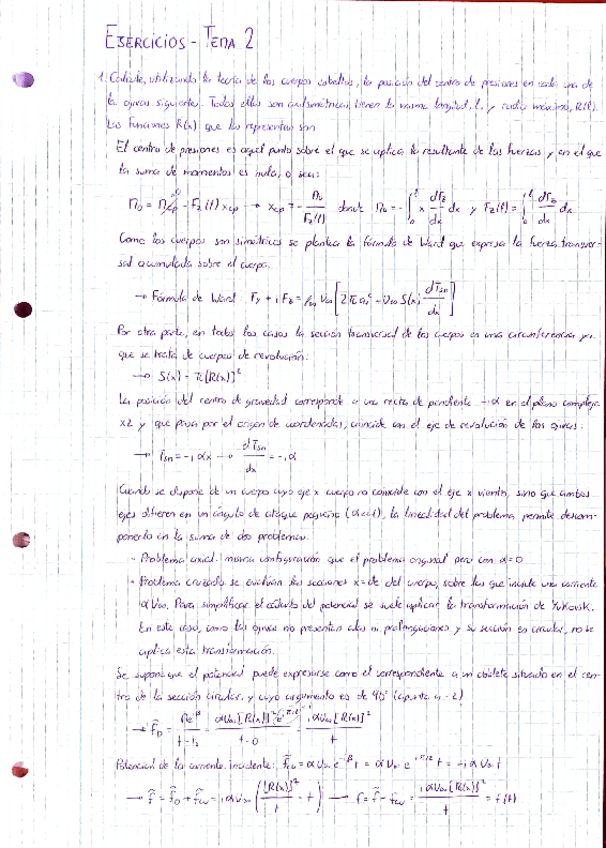 EJERCICIOS - TEMA 2
1. Calcúlese, utilizando la teoría de los cuerpos esbeltos, la posición del centro de presiones en cada una de
la ojivas siguientes. Todas ellas son axilsimétricas, tienen la misma longitud, l, y radio máximo, R(l).
Las funciones R(x) que las representan son
El centro de presiones es aquel punto sobre el que se aplica la resultante de las fuerzas y en el que
la suma de momentos es nula, o sea:
M₀ = M_cp - F_z(l) x_cp → x_cp = - M₀/F_z(l) donde M₀ = - ∫₀ˡ x dF_z/dx dx y F_z(l) = ∫₀ˡ dF_z/dx dx
Como los cuerpos son simétricos se plantea la fórmula de Ward que expresa la fuerza transver-
sal acumulada sobre el cuerpo.
→ Fórmula de Ward: F_y + i F_z = ρ∞ U∞ [2π a₁ - U∞ S(x) dT_sn/dx]
Por otra parte, en todos los casos la sección transversal de los cuerpos es una circunferencia ya
que se trata de cuerpos de revolución:
→ S(x) = π[R(x)]²
La posición del centro de gravedad corresponde a una recta de pendiente -iα en el plano complejo
xz y que pasa por el origen de coordenadas, coincide con el eje de revolución de las ojivas:
→ T_sn = -iαx → dT_sn/dx = -iα
Cuando se dispone de un cuerpo cuyo eje x cuerpo no coincide con el eje x viento, sino que ambos
ejes difieren en un ángulo de ataque pequeño (α<<1), la linealidad del problema permite descom-
ponerlo en la suma de dos problemas.
- Problema axial: misma configuración que el problema original pero con α=0
- Problema cruzado: se evalúan las secciones x=cte del cuerpo, sobre las que incide una corriente
αU∞. Para simplificar el cálculo del potencial se suele aplicar la transformación de Yukousk.
En este caso, como las ojivas no presentan alas ni prolongaciones y su sección es circular, no se
aplica esta transformación.
Se supone que el potencial puede expresarse como el correspondiente a un doblete situado en el cen-
tro de la sección circular, y cuyo argumento es de 90°
→ f̃_D = Me^{iβ}/(t-t₀) = αU∞[R(x)]² e^{iπ/2}/(t-0) = iαU∞[R(x)]²/t
Potencial de la corriente incidente: f̃_cu = αU∞ e^{-iβ} t = αU∞ e^{-iπ/2} t = -iαU∞t
→ f̃ = f̃_D + f̃_cu = iαU∞ ([R(x)]²/t - t) → f = f̃ - f_cu = iαU∞[R(x)]²/t = f(t)